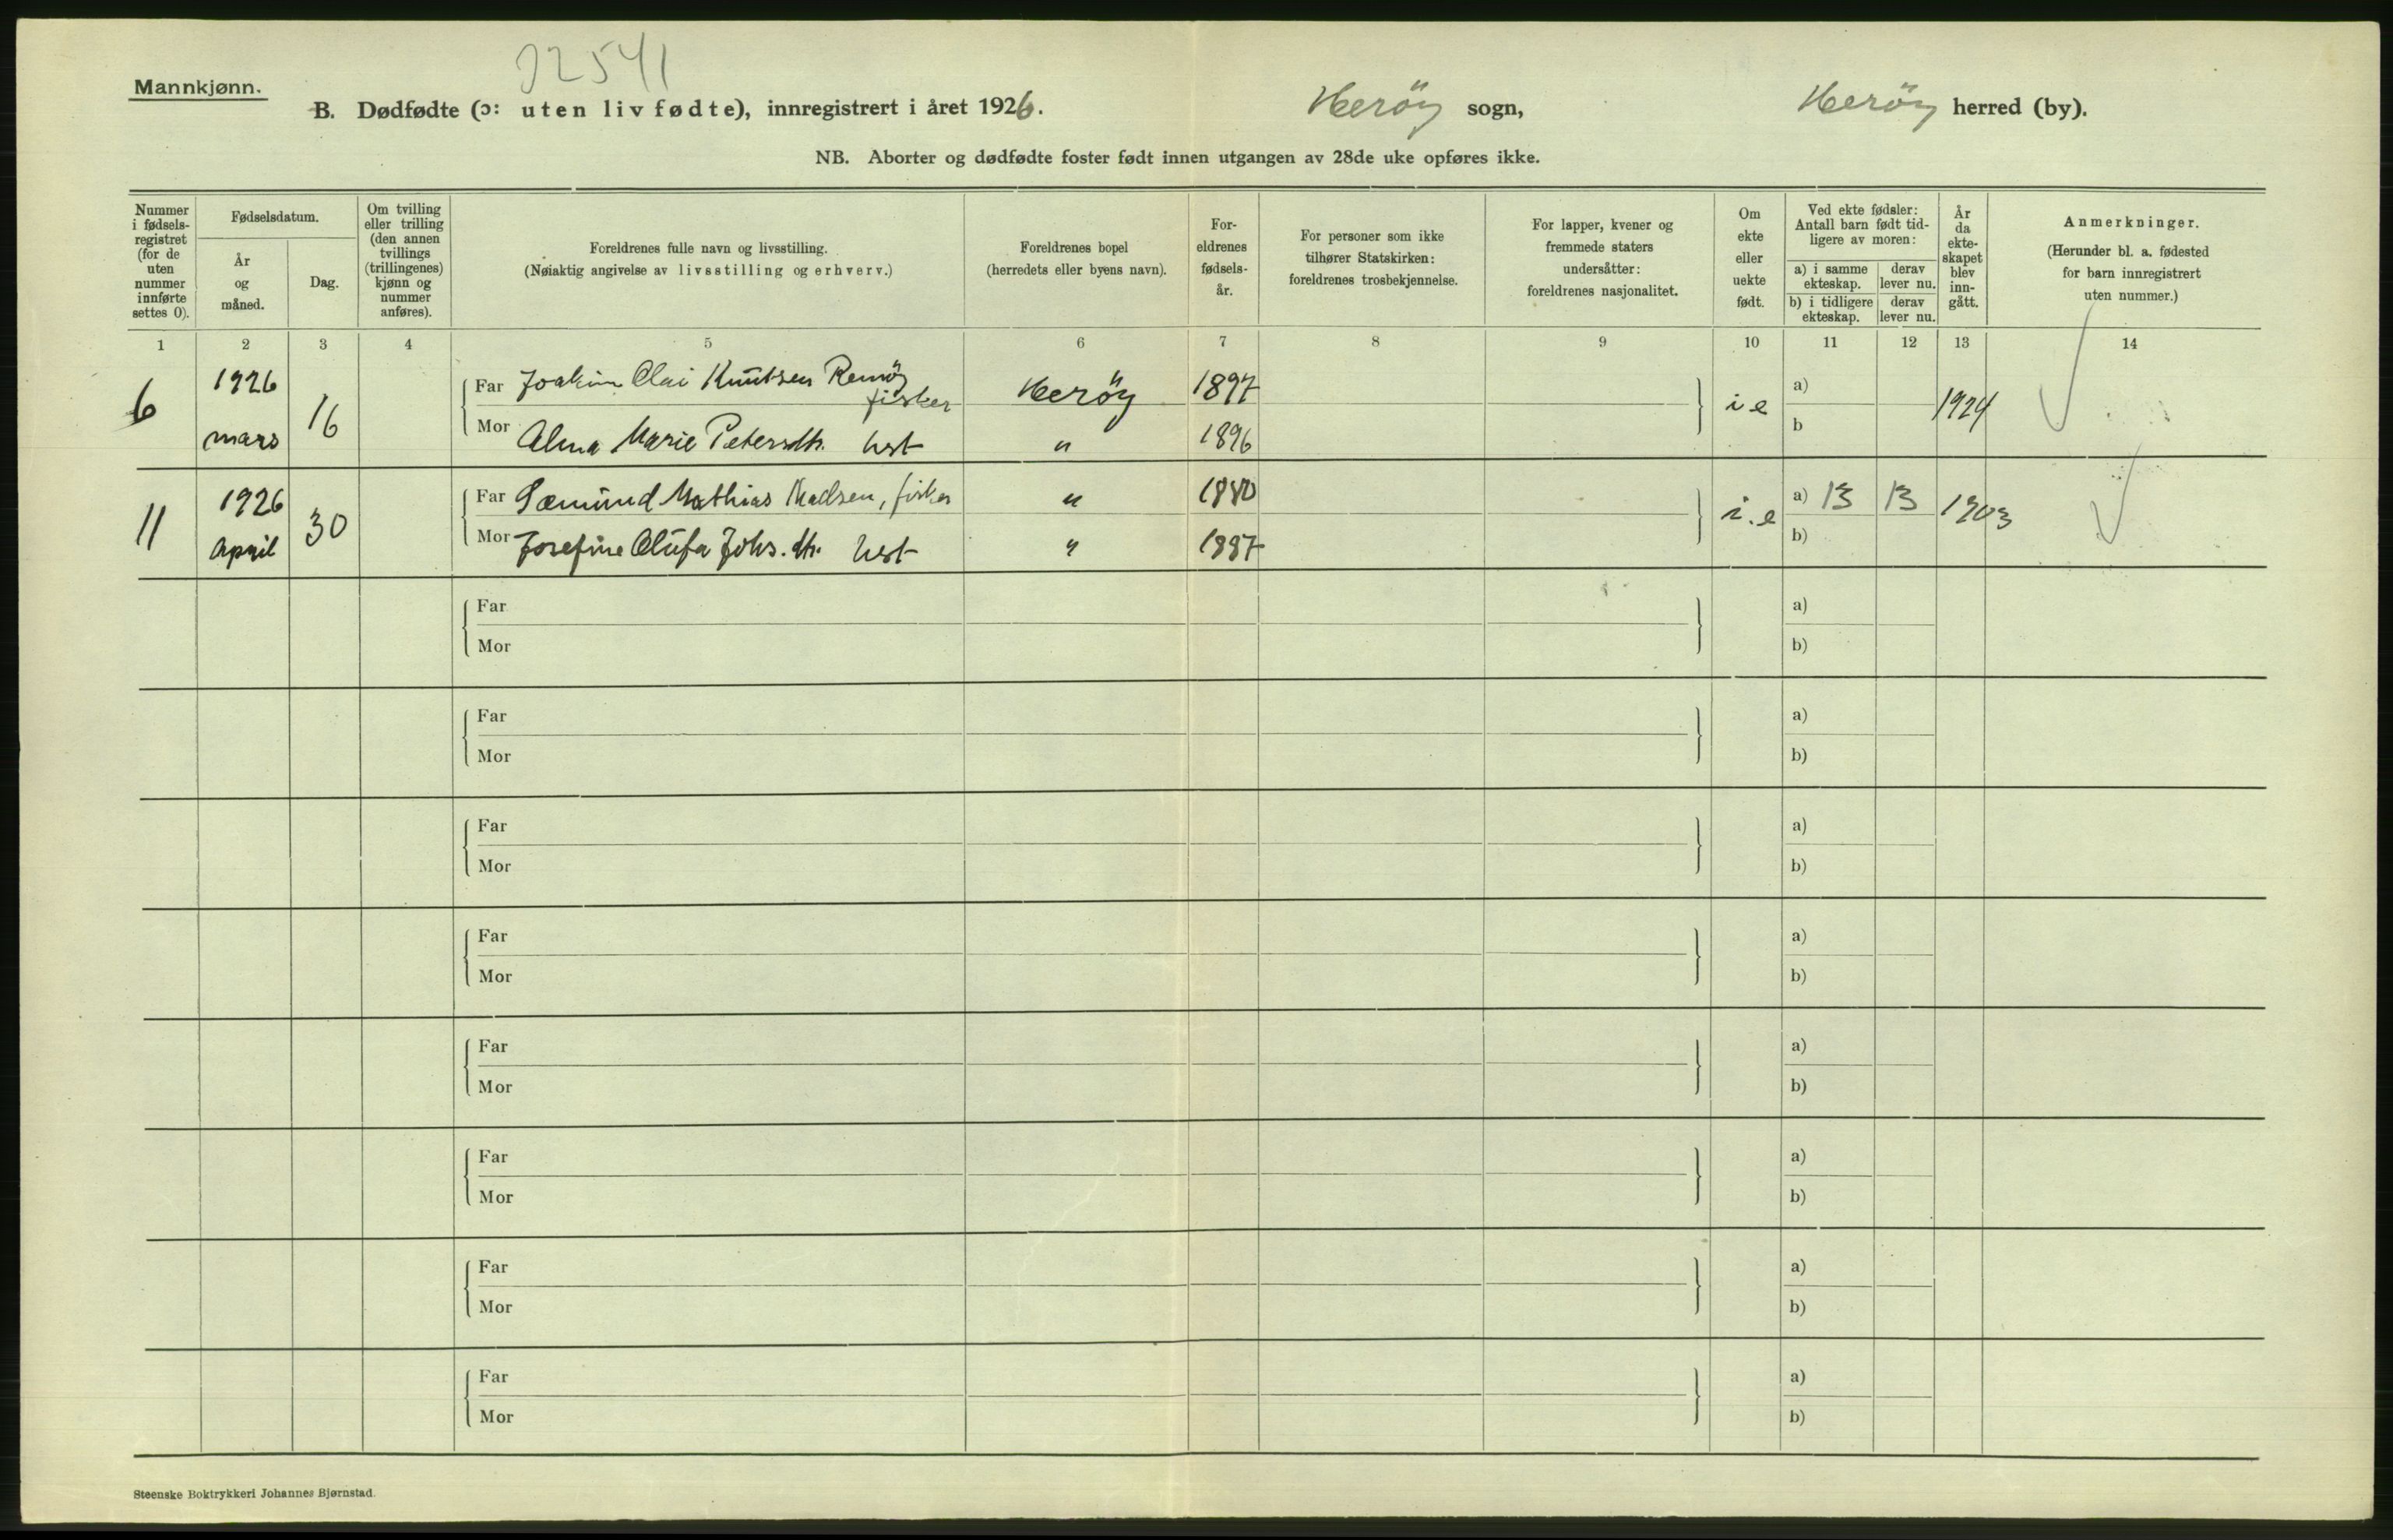 02541
Mannkjønn.
B. Dødfødte (ɔ: uten liv fødte), innregistrert i året 1926. Herøy sogn, Herøy herred (by).
NB. Aborter og dødfødte foster født innen utgangen av 28de uke opføres ikke.
Nummer i fødsels-registret (for de uten nummer innførte settes 0).
Fødselsdatum.
År og måned.
Dag.
Om tvilling eller trilling (den annen tvillings (trillingenes) kjønn og nummer anføres).
Foreldrenes fulle navn og livsstilling.
(Nøiaktig angivelse av livsstilling og erhverv.)
Foreldrenes bopel
(herredets eller byens navn).
For-eldrenes fødsels-år.
For personer som ikke tilhører Statskirken: foreldrenes trosbekjennelse.
For lapper, kvener og fremmede staters undersåtter: foreldrenes nasjonalitet.
Om ekte eller uekte født.
Ved ekte fødsler: Antall barn født tid-ligere av moren:
a) i samme ekteskap.
derav lever nu.
b) i tidligere ekteskap.
derav lever nu.
År da ekte-skapet blev inn-gått.
Anmerkninger.
(Herunder bl. a. fødested for barn innregistrert uten nummer.)
1 2 3 4 5 6 7 8 9 10 11 12 13 14
6 1926 mars 16
Far Joakim Olai Knutsen Remöy fisker Heröy 1897 i e a) 1924
Mor Alma Marie Petersdtr. hst " 1896 b
11 1926 April 30
Far Sæmund Mathias Madsen, fisker " 1880 i.e a) 13 13 1903
Mor Josefine Olufa Johs. dtr. hst " 1887 b)
Far a)
Mor b)
Far a)
Mor b)
Far a)
Mor b)
Far a)
Mor b)
Far a)
Mor b)
Far a)
Mor b)
Far a)
Mor b)
Far a)
Mor b)
Steenske Boktrykkeri Johannes Bjørnstad.